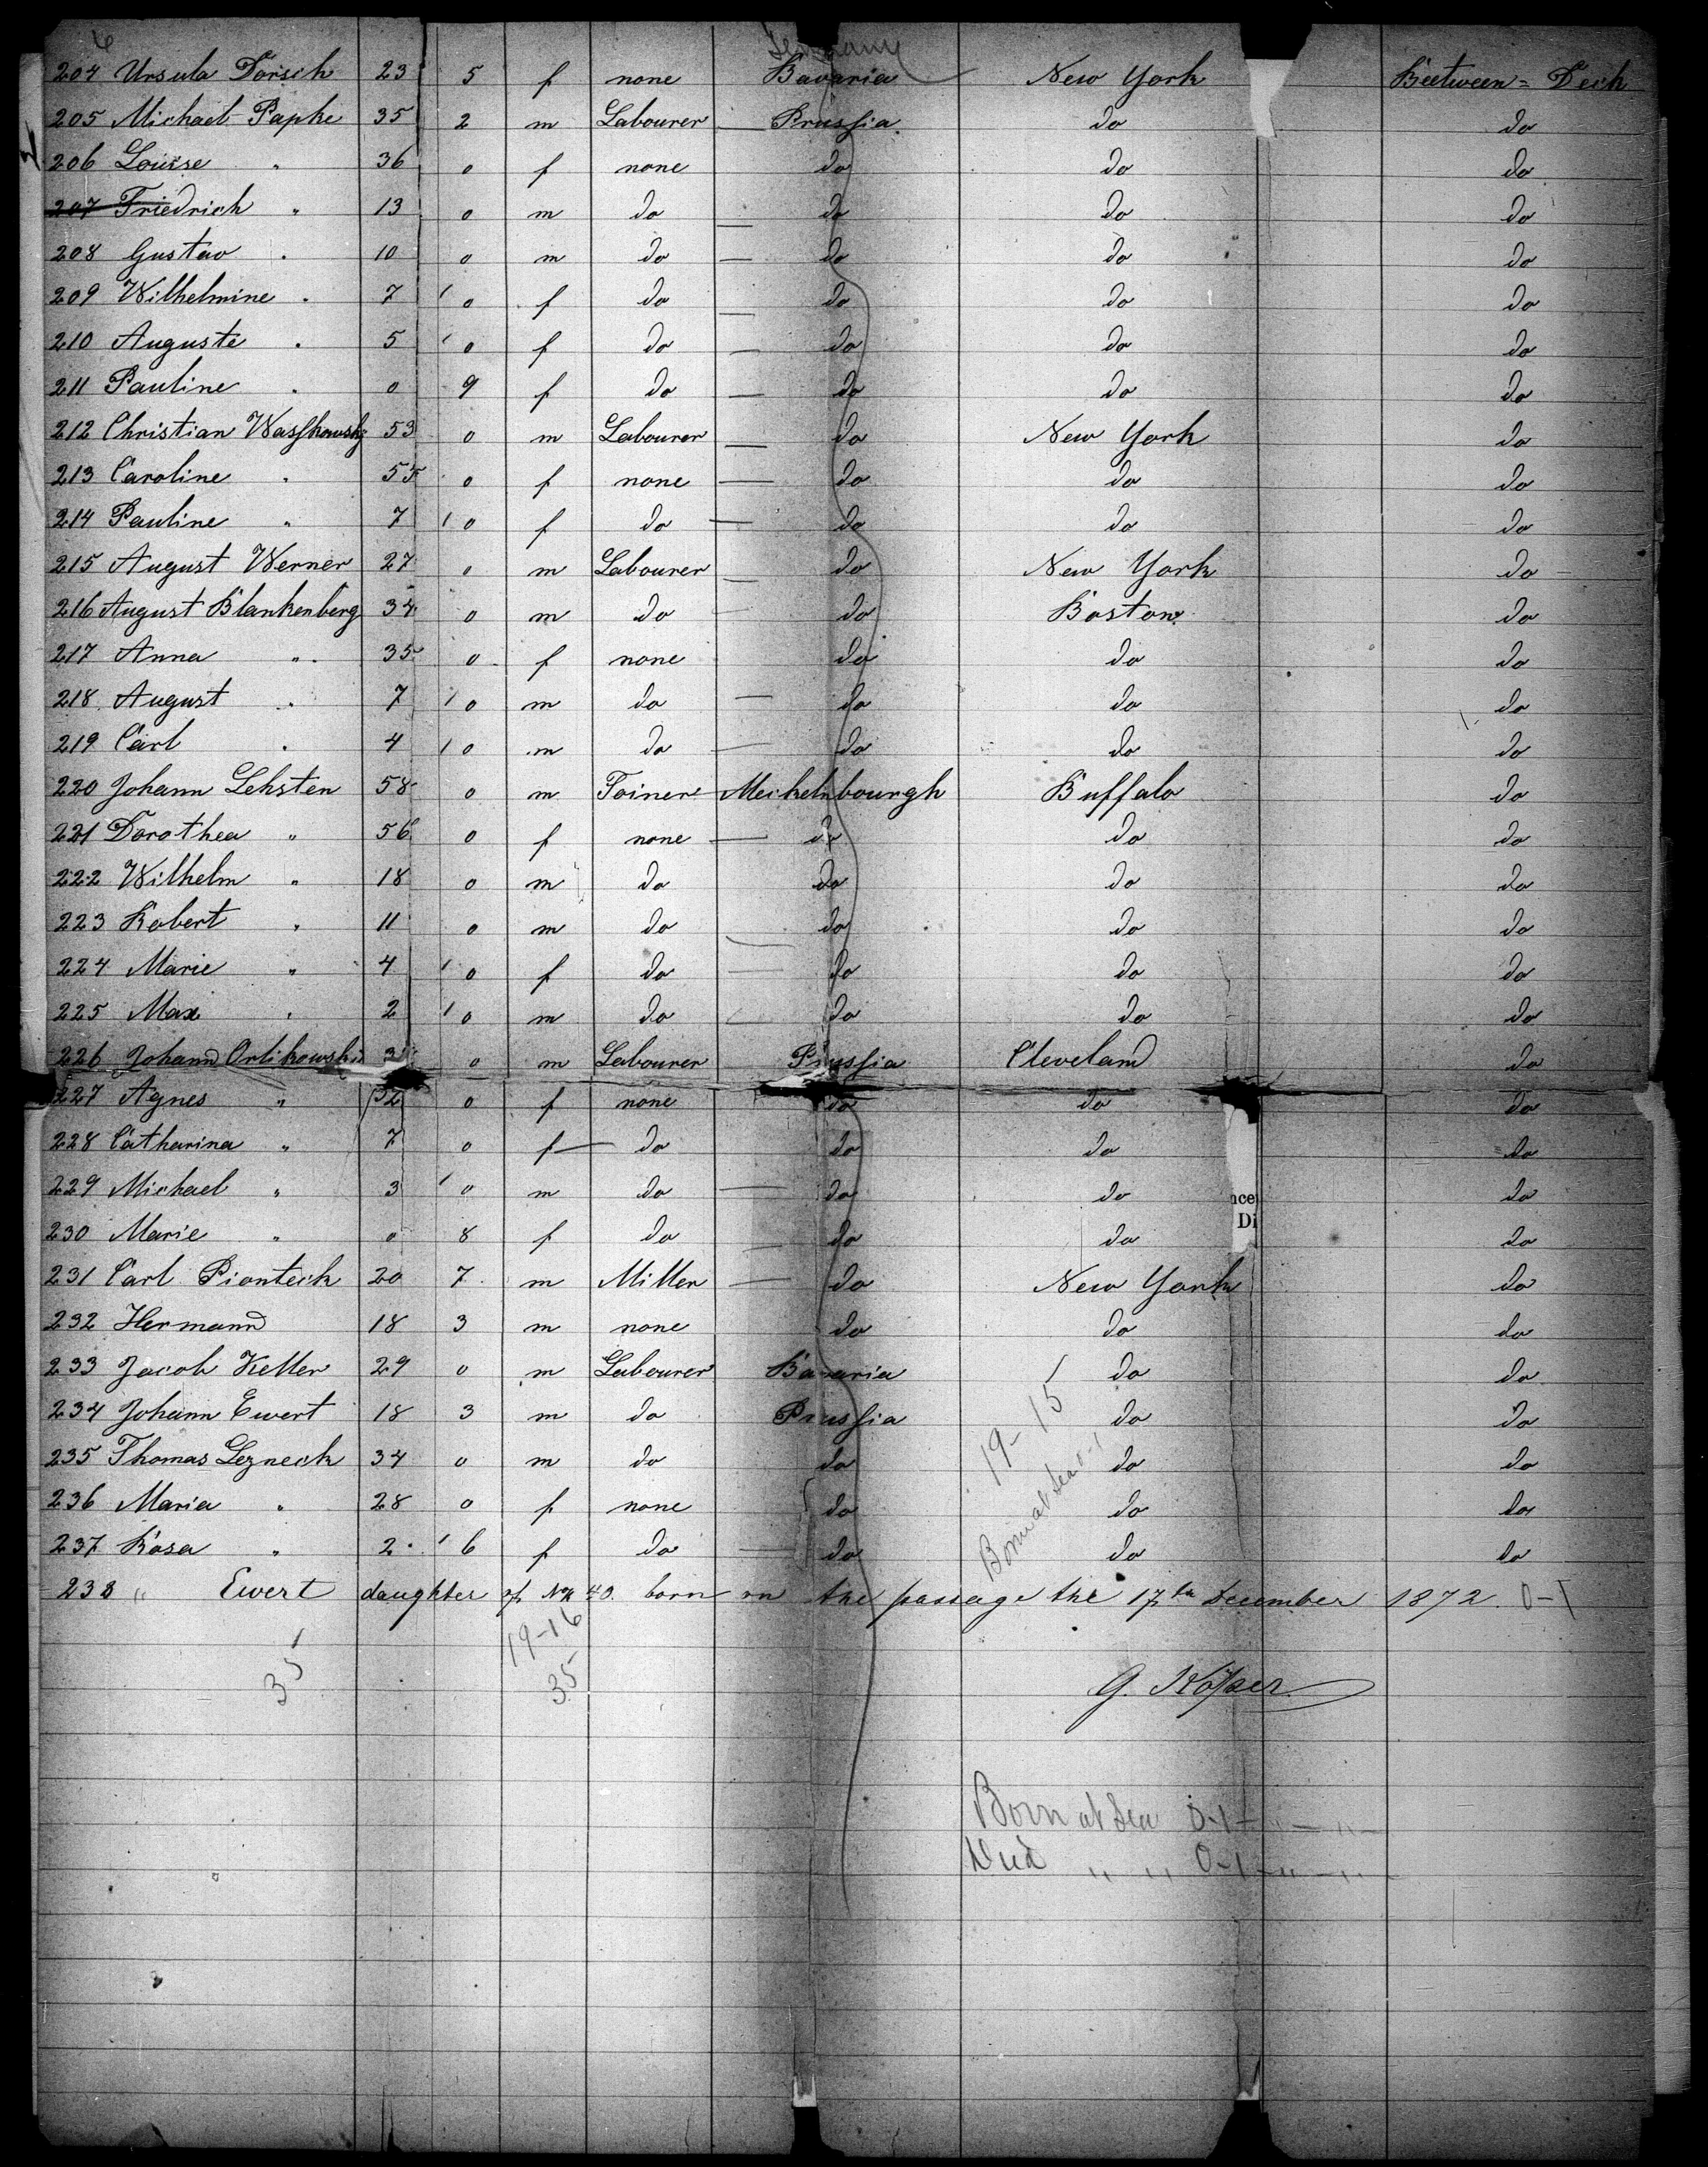 6
Germany
204 Ursula Dorsch 23 5 f none Bavaria New York Beetween = Deck
205 Michael Papke 35 2 m Labourer Prussia do do
206 Louise " 36 0 f none do do do
207 Friedrich " 13 0 m do do do do
208 Gustav " 10 0 m do do do do
209 Wilhelmine " 7 0 f do do do do
210 Auguste " 5 0 f do do do do
211 Pauline " 0 9 f do do do do
212 Christian Wasskowsky 53 0 m Labourer do New York do
213 Caroline " 55 0 f none do do do
214 Pauline " 7 0 f do do do do
215 August Werner 27 0 m Labourer do New York do
216 August Blankenberg 34 0 m do do Boston do
217 Anna " 35 0 f none do do do
218 August " 7 0 m do do do do
219 Carl " 4 0 m do do do do
220 Johann Lehsten 58 0 m Joiner Meckelnbourgh Buffalo do
221 Dorothea " 56 0 f none do do do
222 Wilhelm " 18 0 m do do do do
223 Robert " 11 0 m do do do do
224 Marie " 4 0 f do do do do
225 Max " 2 0 m do do do do
226 Johann Orlikowski 0 m Labourer Prussia Cleveland do
227 Agnes " 32 0 f none do do do
228 Catharina " 7 0 f do do do do
229 Michael " 3 0 m do do do do
230 Marie " 0 8 f do do do do
231 Carl Pionteck 20 7 m Miller do New York do
232 Hermann 18 3 m none do do do
233 Jacob Keller 29 0 m Labourer Bavaria do do
234 Johann Ewert 18 3 m do Prussia do do
235 Thomas Lezneck 34 0 m do do do do
236 Maria " 28 0 f none do do do
237 Rosa " 2 6 f do do do do
19-15
Born at Sea 0-1
238 " Ewert daughter of No 40. born on the passage the 17th December 1872. 0-1
35
19-16
35
G. Köper
Born at Sea 0-1-"-"-
Died " " 0-1-"-"-
nce
Di